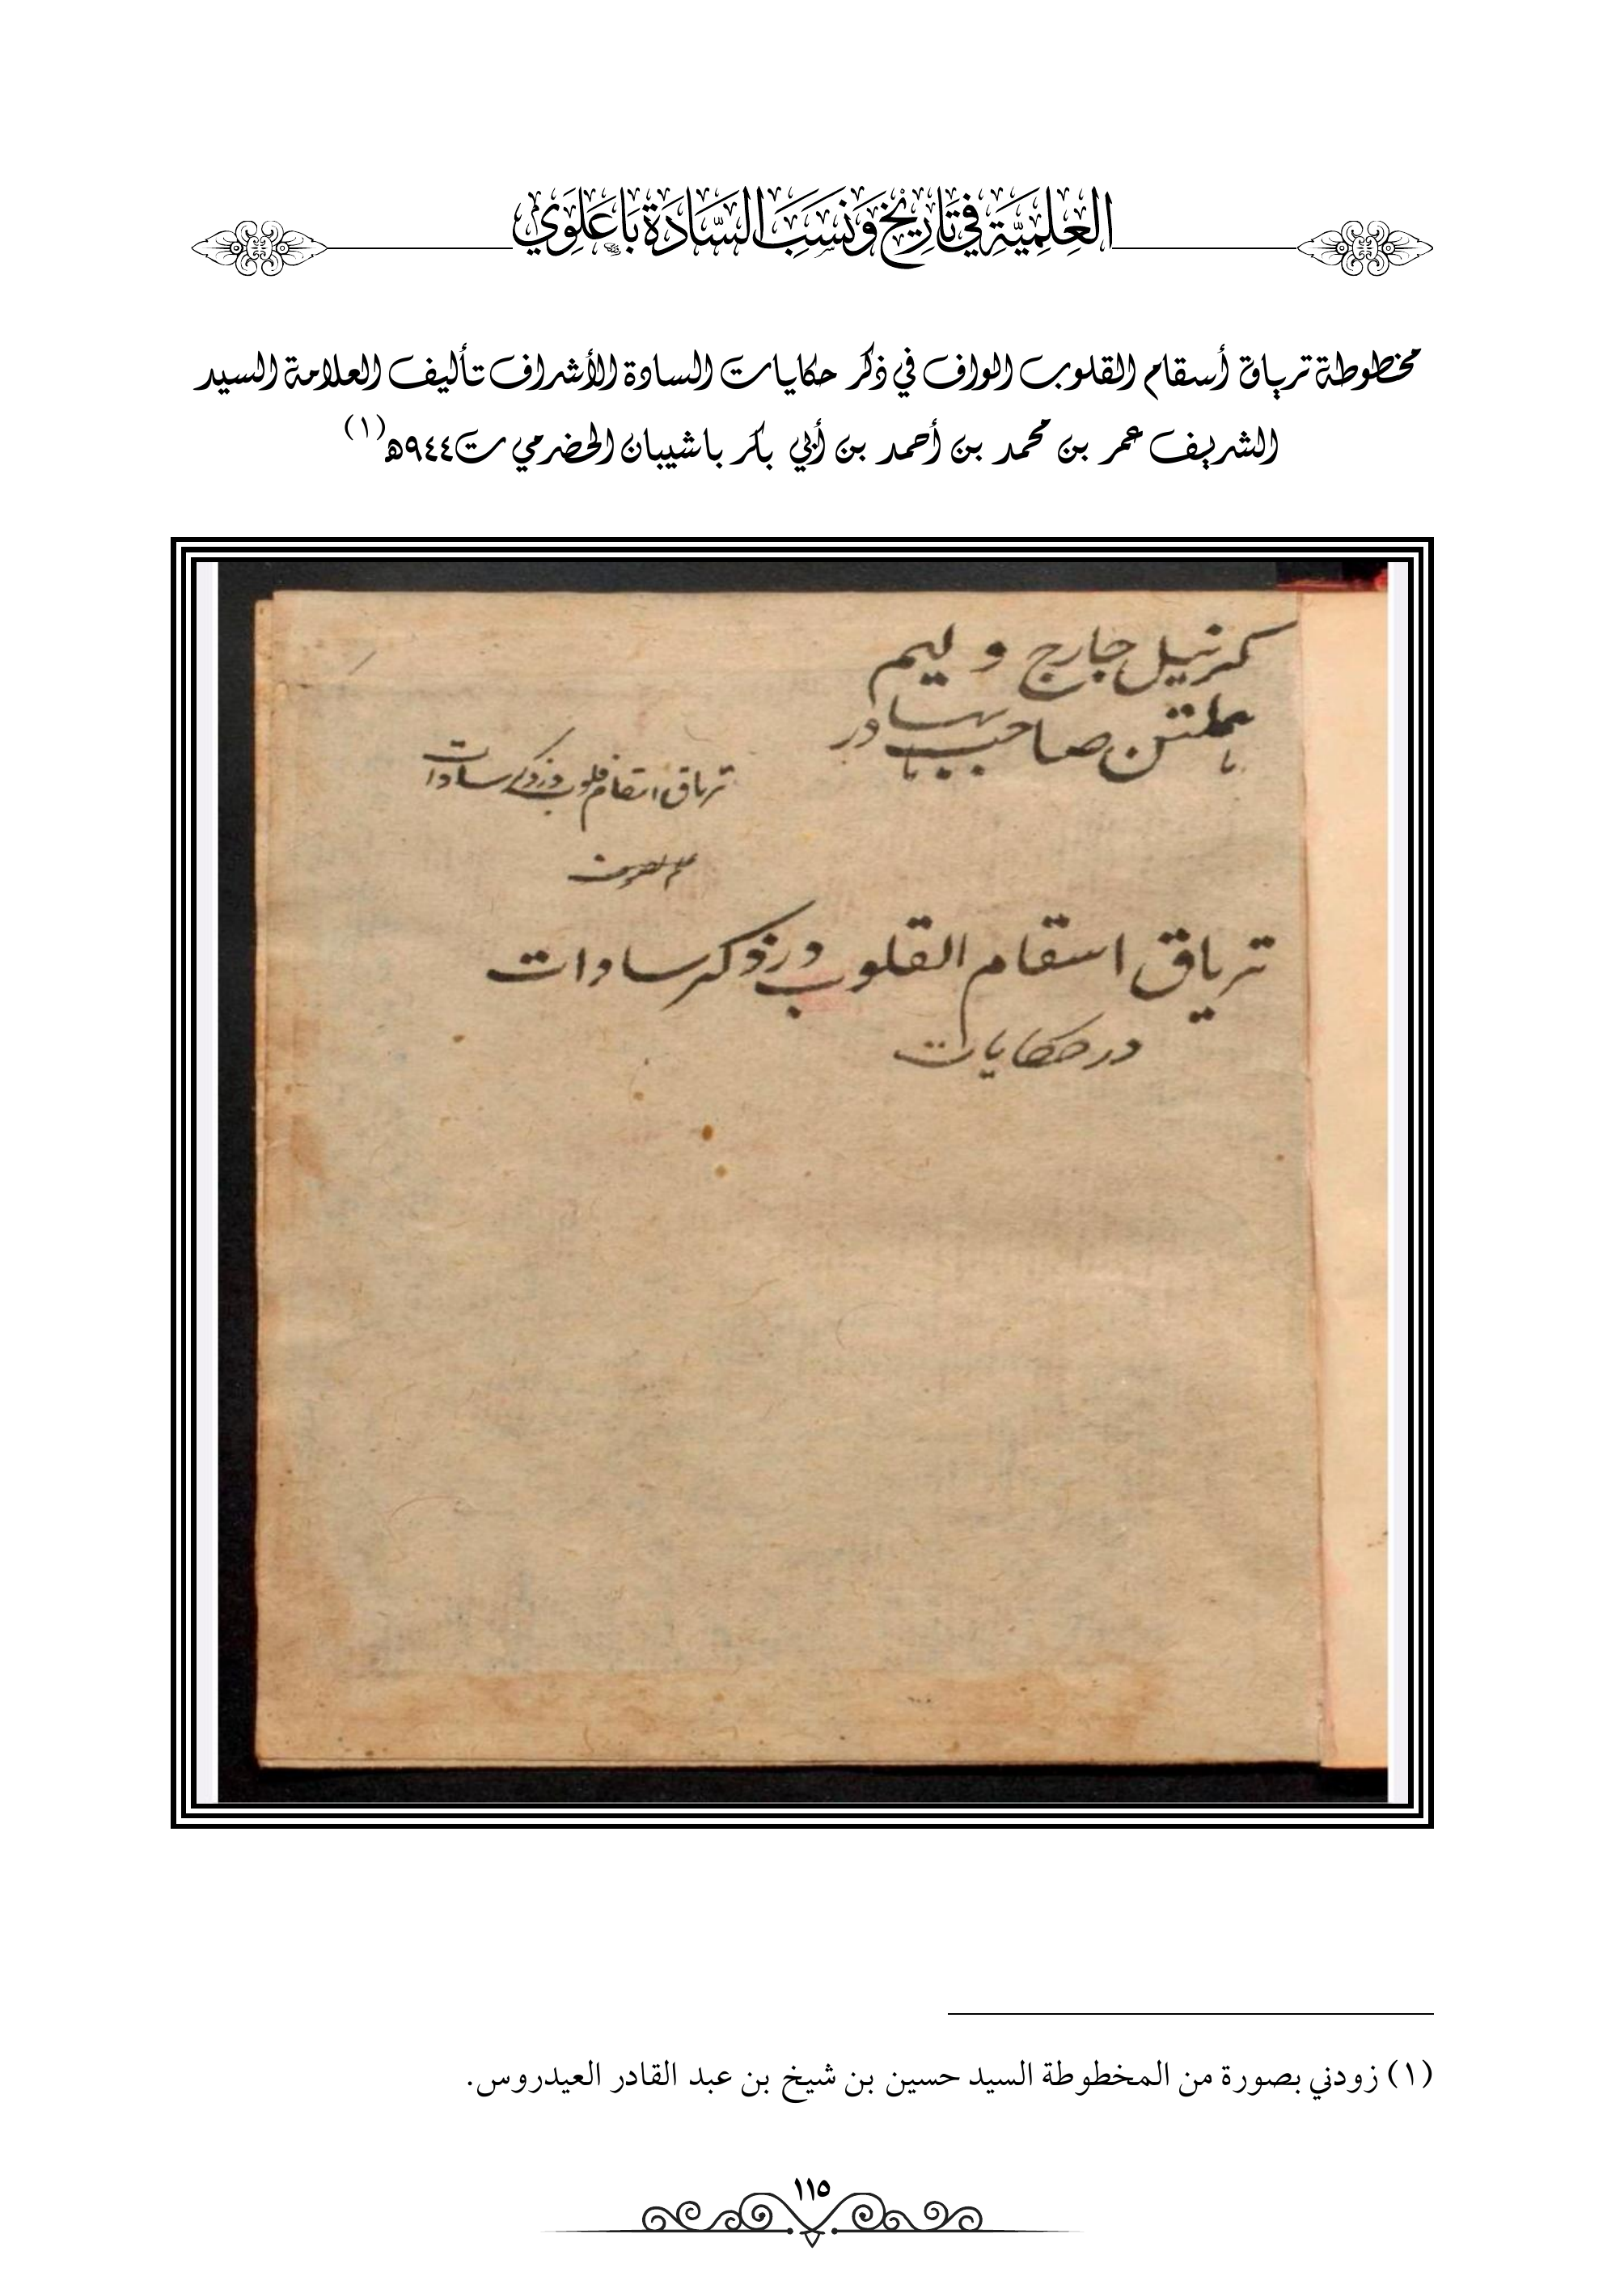 العِلْمِيَّة فِي تَارِيْخ وَنَسَبَ السَّادَة بَاعَلَوِي
مخطوطة ترياق أسقام القلوب الواف في ذكر حكايات السادة الأشراف تأليف العلامة السيد
الشريف عمر بن محمد بن أحمد بن أبي بكر باشيبان الحضرمي ت٩٤٤ه(١)
كرنيل جارج وليم
هملتن صاحب بهادر
ترياق اسقام قلوب در ذكر سادات
ترياق اسقام القلوب در ذكر سادات
در حكايات
(١) زودني بصورة من المخطوطة السيد حسين بن شيخ بن عبد القادر العيدروس.
١١٥